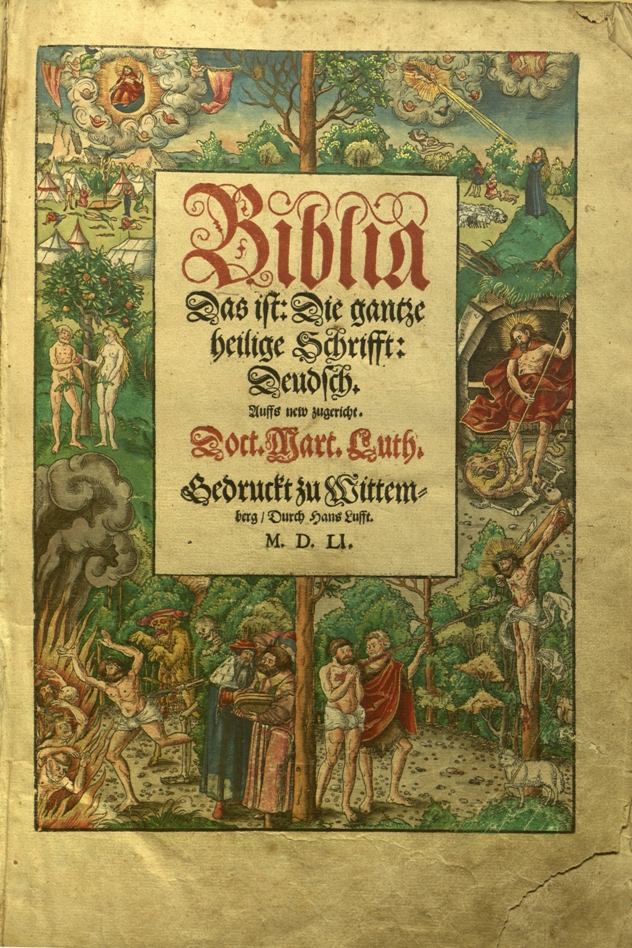 Biblia
Das ist: Die gantze
heilige Schrifft:
Deudsch.
Auffs new zugericht.
Doct. Mart. Luth.
Gedruckt zu Wittem=
berg / Durch Hans Lufft.
M. D. LI.